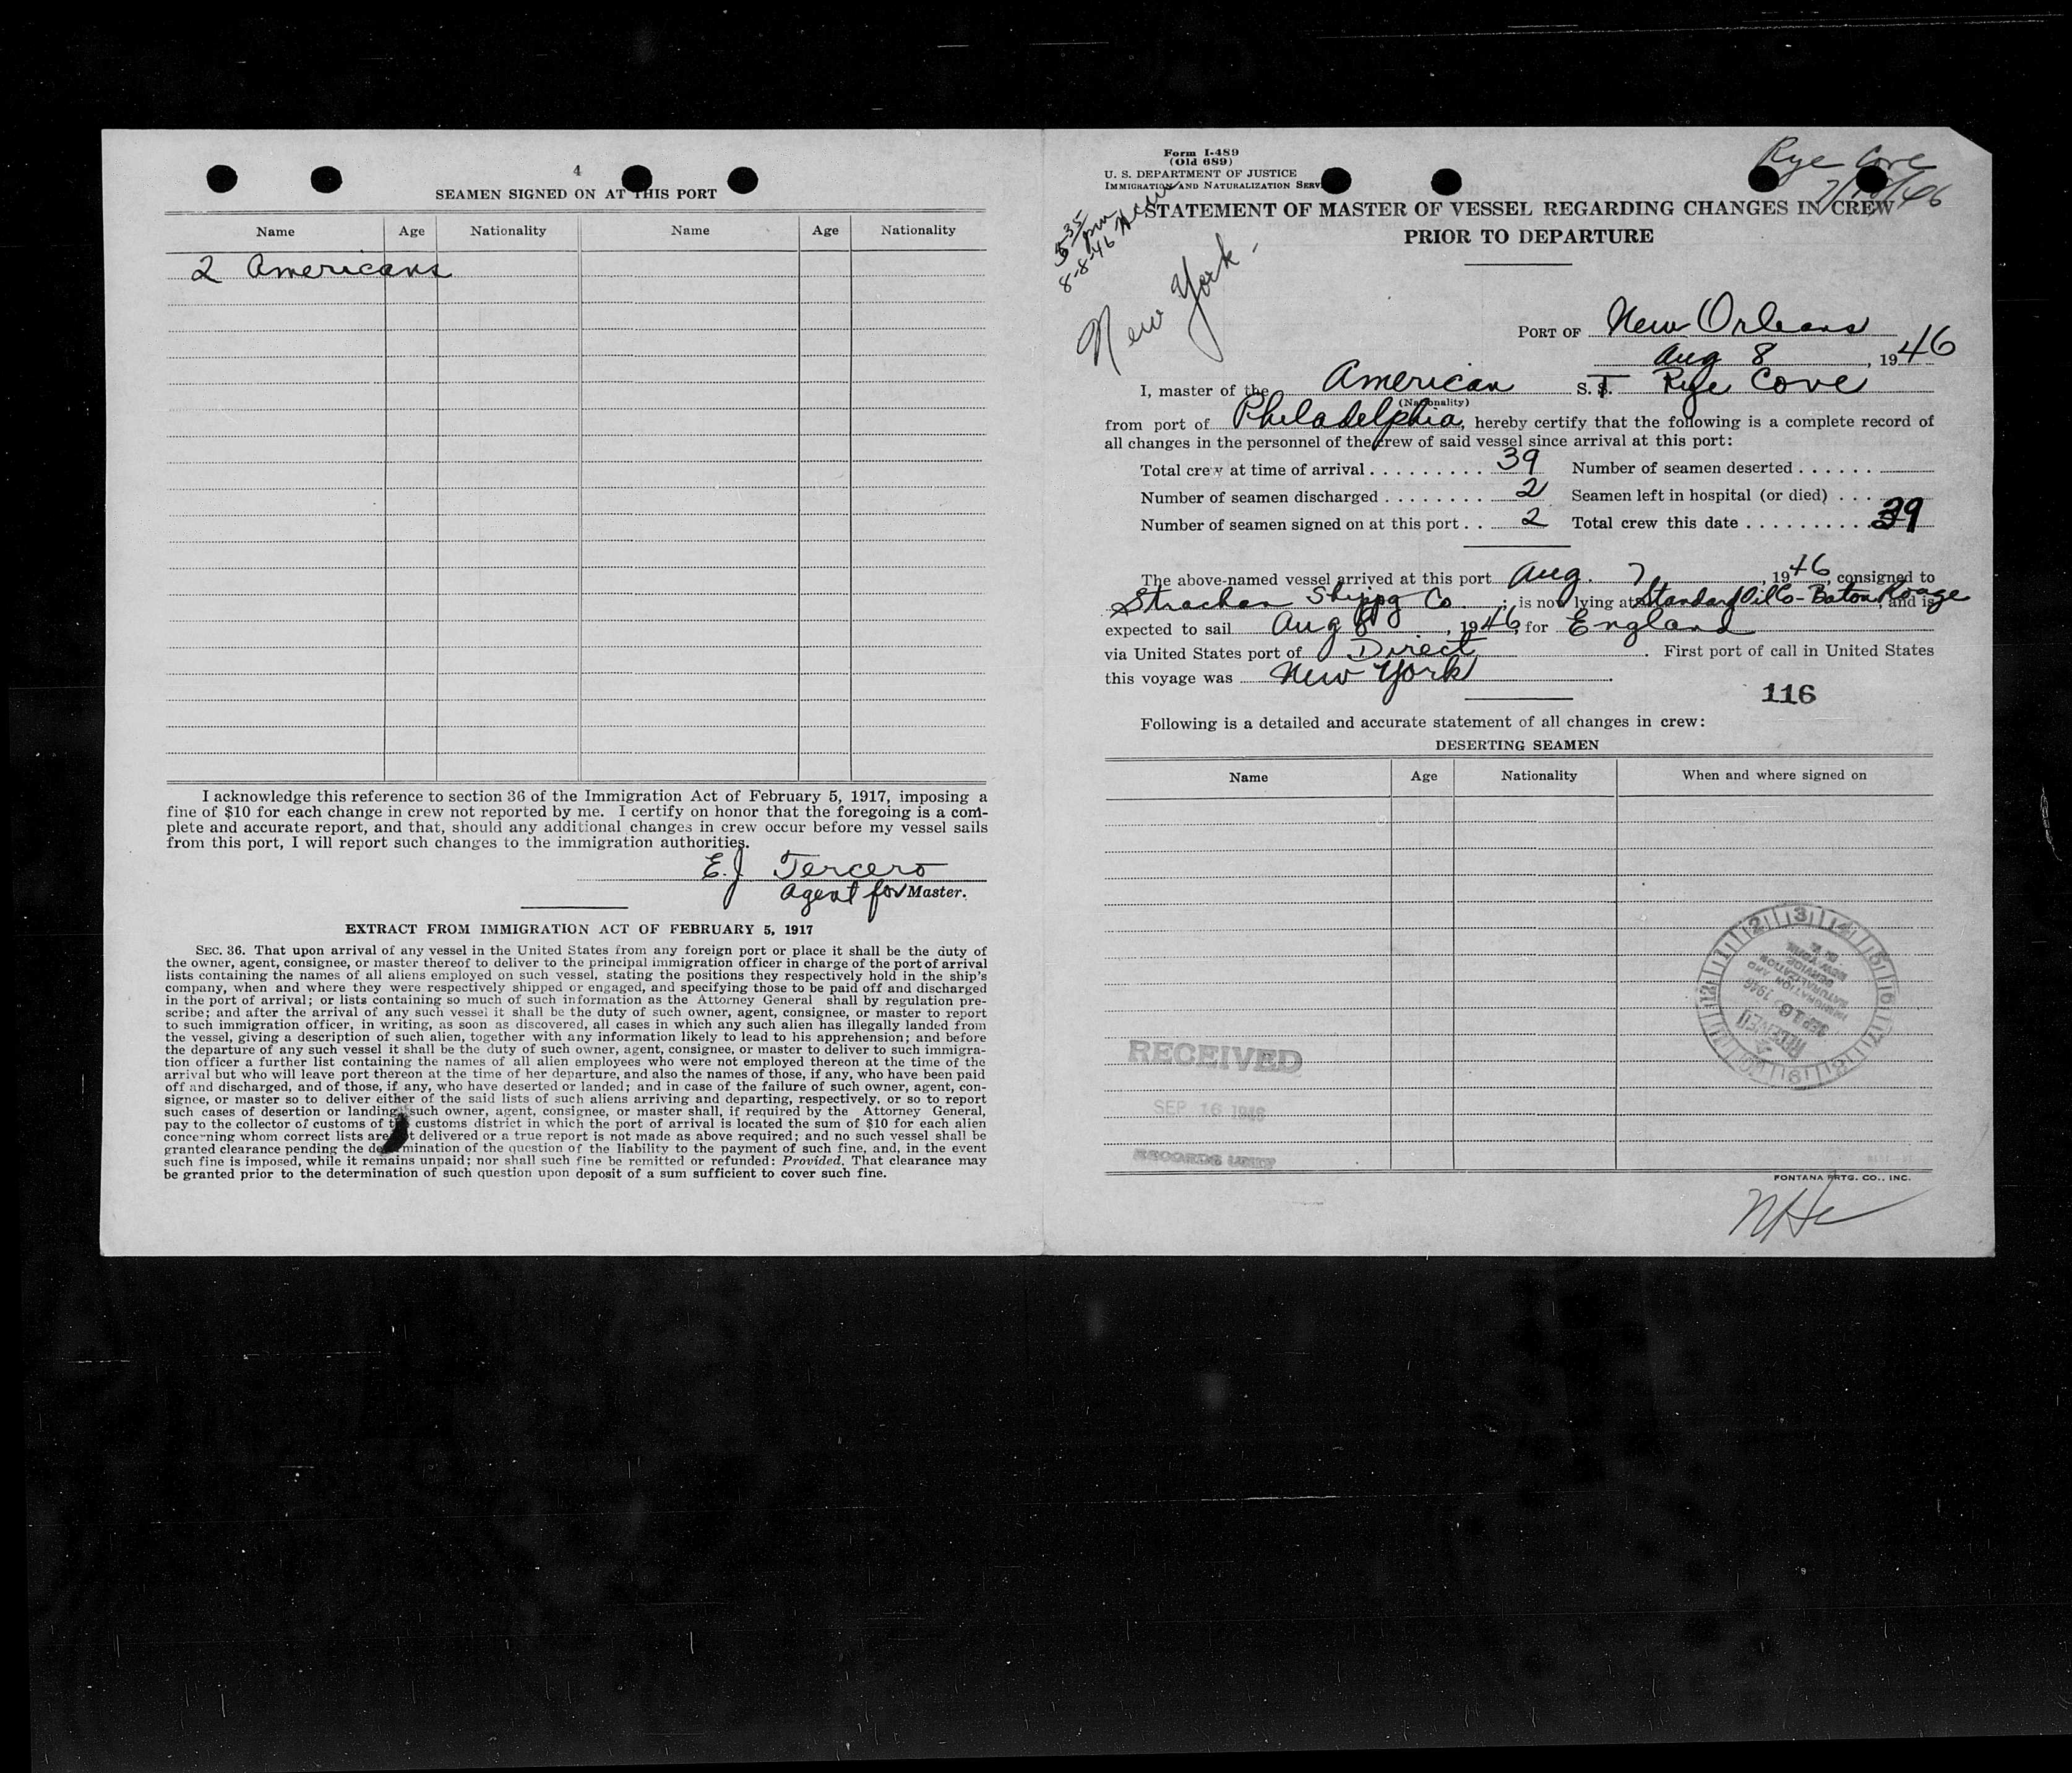 4
SEAMEN SIGNED ON AT THIS PORT
Name Age Nationality Name Age Nationality
2 Americans
I acknowledge this reference to section 36 of the Immigration Act of February 5, 1917, imposing a
fine of $10 for each change in crew not reported by me. I certify on honor that the foregoing is a com-
plete and accurate report, and that, should any additional changes in crew occur before my vessel sails
from this port, I will report such changes to the immigration authorities.
E.J. Tercero
Agent for Master.
EXTRACT FROM IMMIGRATION ACT OF FEBRUARY 5, 1917
SEC. 36. That upon arrival of any vessel in the United States from any foreign port or place it shall be the duty of
the owner, agent, consignee, or master thereof to deliver to the principal immigration officer in charge of the port of arrival
lists containing the names of all aliens employed on such vessel, stating the positions they respectively hold in the ship's
company, when and where they were respectively shipped or engaged, and specifying those to be paid off and discharged
in the port of arrival; or lists containing so much of such information as the Attorney General shall by regulation pre-
scribe; and after the arrival of any such vessel it shall be the duty of such owner, agent, consignee, or master to report
to such immigration officer, in writing, as soon as discovered, all cases in which any such alien has illegally landed from
the vessel, giving a description of such alien, together with any information likely to lead to his apprehension; and before
the departure of any such vessel it shall be the duty of such owner, agent, consignee, or master to deliver to such immigra-
tion officer a further list containing the names of all alien employees who were not employed thereon at the time of the
arrival but who will leave port thereon at the time of her departure, and also the names of those, if any, who have been paid
off and discharged, and of those, if any, who have deserted or landed; and in case of the failure of such owner, agent, con-
signee, or master so to deliver either of the said lists of such aliens arriving and departing, respectively, or so to report
such cases of desertion or landing, such owner, agent, consignee, or master shall, if required by the Attorney General,
pay to the collector of customs of the customs district in which the port of arrival is located the sum of $10 for each alien
concerning whom correct lists are not delivered or a true report is not made as above required; and no such vessel shall be
granted clearance pending the determination of the question of the liability to the payment of such fine, and, in the event
such fine is imposed, while it remains unpaid; nor shall such fine be remitted or refunded: Provided, That clearance may
be granted prior to the determination of such question upon deposit of a sum sufficient to cover such fine.
Form I-489
(Old 689)
U. S. DEPARTMENT OF JUSTICE
IMMIGRATION AND NATURALIZATION SERV
Rye Cove
5 35 pm
8-8-46
New York
STATEMENT OF MASTER OF VESSEL REGARDING CHANGES IN CREW
PRIOR TO DEPARTURE
PORT OF New Orleans
Aug 8, 1946
I, master of the American S.T. Rye Cove
(Nationality)
from port of Philadelphia, hereby certify that the following is a complete record of
all changes in the personnel of the crew of said vessel since arrival at this port:
Total crew at time of arrival . . . . . . . . . 39 Number of seamen deserted . . . . . .
Number of seamen discharged . . . . . . . . 2 Seamen left in hospital (or died) . . .
Number of seamen signed on at this port . . 2 Total crew this date . . . . . . . . . . 39
The above-named vessel arrived at this port Aug. 7, 1946, consigned to
Strachan Shippg Co.; is now lying at Standard Oil Co - Baton Rouge, and is
expected to sail Aug 8, 1946, for England
via United States port of Direct. First port of call in United States
this voyage was New York.
116
Following is a detailed and accurate statement of all changes in crew:
DESERTING SEAMEN
Name Age Nationality When and where signed on
RECEIVED
SEP 16 1946
RECORDS UNIT
12 1 2 3 4 5 6 7 8 9 10 11
RECEIVED
SEP 16 1946
IMMIGRATION AND
NATURALIZATION
SERVICE
NEW YORK
N. Y.
FONTANA PRTG. CO., INC.